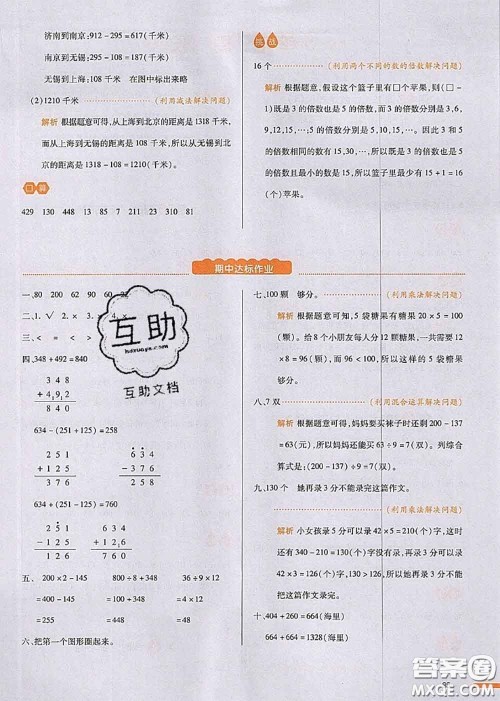 济南到南京：912 - 295 = 617（千米）
南京到无锡：295 - 108 = 187（千米）
无锡到上海：108 千米　在图中标出来略
(2)1210 千米　（利用减法解决问题）
解析 根据题意可得，从上海到北京的距离是 1318 千米，
而从上海到无锡的距离是 108 千米，所以从无锡到北
京的距离是 1318 - 108 = 1210（千米）。
口算
429 130 448 13 85 7 211 23 310 81
挑战
16 个　（利用两个不同的数的倍数解决问题）
解析 根据题意，假设这个篮子里有□个苹果，则（□ -
1）既是 3 的倍数也是 5 的倍数，而 3 的倍数分别是 3,6,
9,12,15,…，5 的倍数分别是 5,10,15,…。因此 3 和 5
的倍数相同的数有 15,30,…，所以既是 3 的倍数也是 5
的倍数且最小的数是 15，所以篮子里最少有 15 + 1 = 16
（个）苹果。
期中达标作业
一、80 200 62 90 60 22
二、1.√ 2. 4.
三、< = > >
四、348 + 492 = 840
3 4 8
+ 4 9 2
8 4 0
634 -（251 + 125）= 258
2 5 1
+ 1 2 5
3 7 6
6 3 4
- 3 7 6
634 -（251 + ）= 760
2 5 1
- 1 2 5
1 2 6
6 3 4
+ 1 2 6
7 6 0
五、 200 × 2 - 145
= 400 - 145
= 255
800 - 9 × 32
= 800 - 288
= 512
9 × 6 ÷ 3
= 54 ÷ 3
= 18
六、把第一个图形圈起来。
七、100 颗　够分。　（利用乘法解决问题）
解析 根据题意可知，5 袋糖果有糖果 20 × 5 = 100
（颗）。给 8 个小朋友每人分 12 颗糖果，一共需要 12
× 8 = 96（颗）。而 96 < 100，所以这样的 5 袋糖果
够分。
八、7 双　（利用混合运算解决问题）
解析 根据题意可得，妈妈要买袜子时还剩 200 - 137
= 63（元），所以妈妈还能买 63 ÷ 9 = 7（双）。列综合
算式是：（200 - 137）÷ 9 = 7（双）。
九、130 个　她再录 3 分不能录完这篇作文。
（利用乘法解决问题）
解析 小女孩录 5 分可以录 42 × 5 = 210（个）字，这
篇作文还有 340 - 210 = 130（个）字没有录，再录 3 分
可以录 42 × 3 = 126（个）字，所以她再录 3 分不能录
完这篇作文录完。
十、404 + 260 = 664（海里）
664 + 664 = 1328（海里）
互助
huzuoye.com
互助文档
答案圈
MXQE.COM